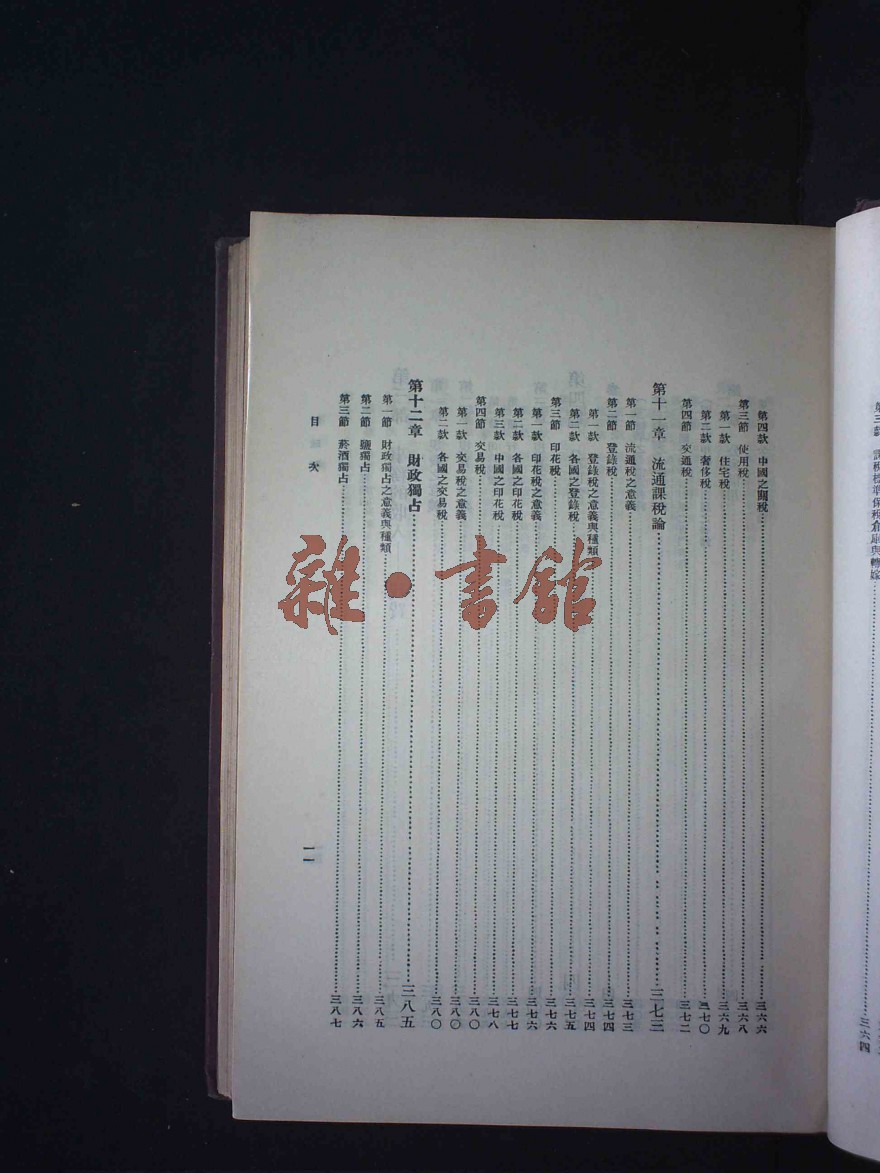 第三款 課稅標準保稅倉庫與轉嫁……三六四
第四款 中國之關稅……三六六
第三節 使用稅……三六八
第一款 住宅稅……三六九
第二款 奢侈稅……三七〇
第四節 交通稅……三七二
第十一章 流通課稅論……三七三
第一節 流通稅之意義……三七三
第二節 登錄稅……三七四
第一款 登錄稅之意義與種類……三七四
第二款 各國之登錄稅……三七五
第三節 印花稅……三七六
第一款 印花稅之意義……三七六
第二款 各國之印花稅……三七七
第三款 中國之印花稅……三七八
第四節 交易稅……三八〇
第一款 交易稅之意義……三八〇
第二款 各國之交易稅……三八〇
第十二章 財政獨占……三八五
第一節 財政獨占之意義與種類……三八五
第二節 鹽獨占……三八六
第三節 菸酒獨占……三八七
目次
一一
雜·書館